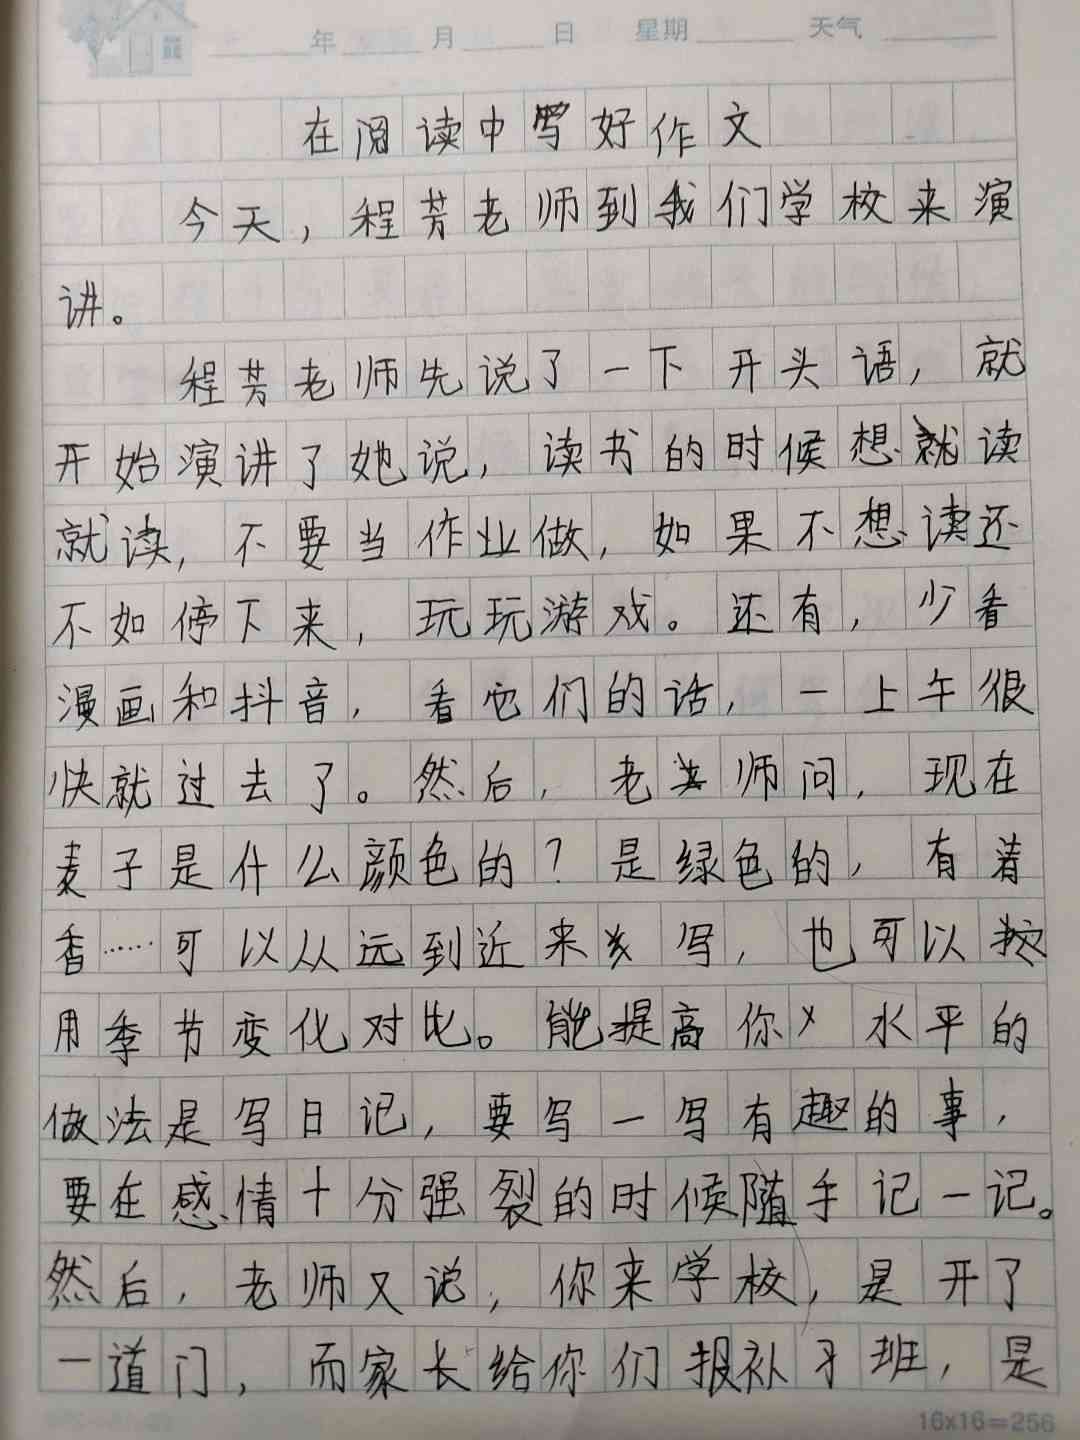 年 月 日 星期 天气
在阅读中写好作文
今天，程芳老师到我们学校来演
讲。
程芳老师先说了一下开头语，就
开始演讲了她说，读书的时候想就读
就读，不要当作业做，如果不想读还
不如停下来，玩玩游戏。还有，少看
漫画和抖音，看它们的话，一上午很
快就过去了。然后，老师问，现在
麦子是什么颜色的？是绿色的，有着
香……可以从远到近来写，也可以
用季节变化对比。能提高你水平的
做法是写日记，要写一写有趣的事，
要在感情十分强裂的时候随手记一记。
然后，老师又说，你来学校，是开了
一道门，而家长给你们报补习班，是
16x16=256